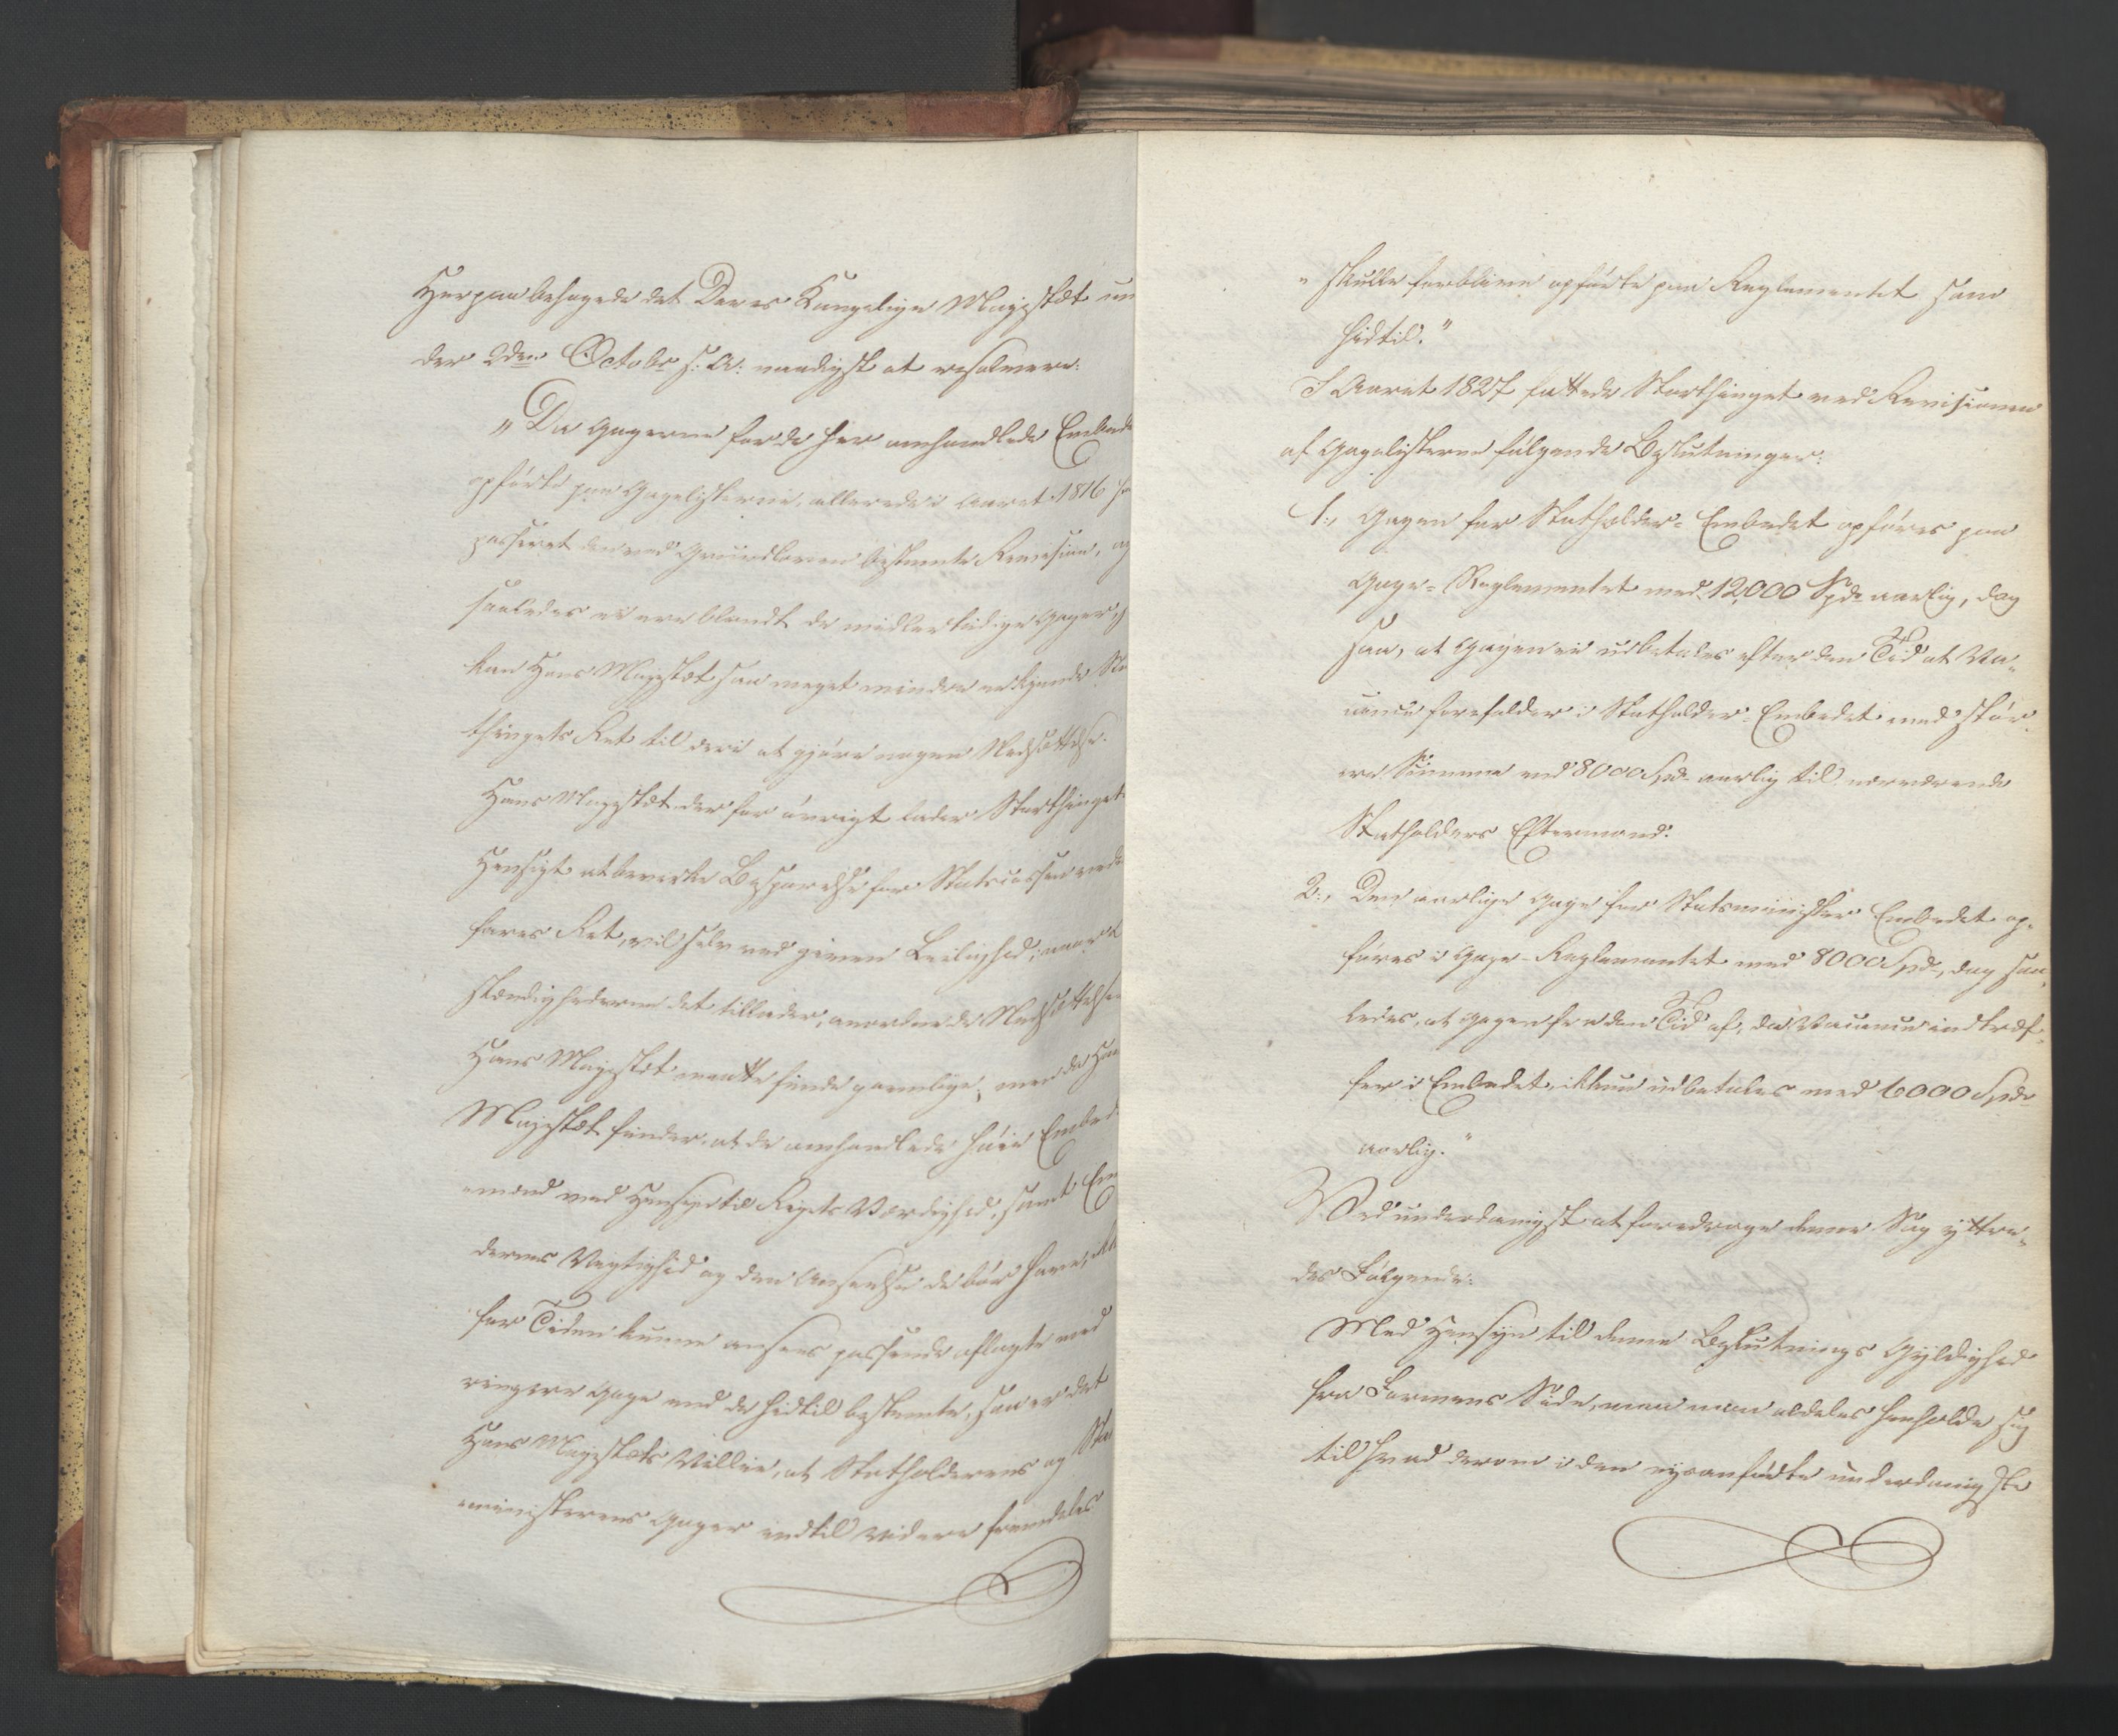 Herpaa behagede det Deres Kongelige Majestæt un
der 2den Octobr s: A: naadigst at resolvere:
"Da Gagerne for de her omhandlede Embeds
opførte paa Gagelisterne, allerede i Aaret 1816 ha
passeret den ved Grundloven bestemte Revision, og
saaledes ei ere blandt de midlertidige Gager,
kan Hans Majestæt saa meget mindre erkjende Sto
thingets Ret til deri at gjøre nogen Nedsættelse.
Hans Majestæt der for øvrigt lader Storthingets
Hensigt at bevirke Besparelse for Statscassen veder
fares Ret, vil selv ved given Leilighed, naar O
stændighederne det tillader, anordne de Nedsættelser
Hans Majestæt maatte finde gavnlige; men da Hans
Majestæt finder, at de omhandlede høie Embeds
mænd med Hensyn til Rigets Værdighed, samt Em
dernes Vigtighed og den Anseelse de bør have, ikke
for Tiden kunne ansees passende aflagte med
ringere Gage end de hidtil bestemte, saa er det
Hans Majestæts Villie, at Statholderens og Stats
ministerens Gager indtil videre fremdeles
" skulle forblive opførte paa Reglementet som
hidtil."
I Aaret 1827 fattede Storthinget ved Revisionen
af Gagelisterne følgende Beslutninger:
1:, Gagen for Statholder-Embedet opføres paa
Gage-Reglementet med 12,000 Spd aarlig, dog
saa, at Gagen ei udbetales efter den Tid at Va-
cance forefalder i Statholder-Embedet med stør-
re Summa end 8000 Spd aarlig til nærværende
Statholders Eftermand.
2:, Den aarlige Gage for Statsminister Embedet op-
føres i Gage-Reglementet med 8000 Spd, dog saa-
ledes, at Gagen fra den Tid af, da Vacance indtræf-
fer i Embedet, ikkun udbetales med 6000 Spd
aarlig."
Ved underdanigst at foredrage denne Sag yttre-
des Følgende:
Med Hensyn til denne Beslutnings Gyldighed
fra Formens Side, maa man aldeles henholde sig
til hvad derom i den nysanførte underdanigste